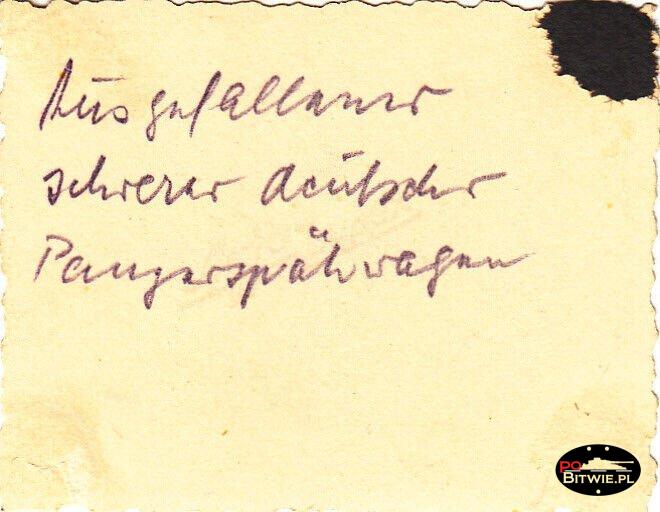 Ausgefallener
schwerer deutscher
Panzerspähwagen
PO
BITWIE.PL